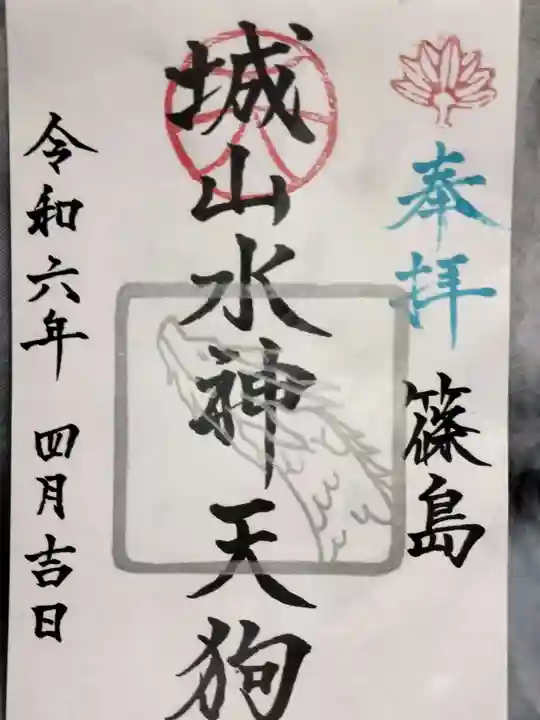 奉拝 篠島
城山水神天狗
令和六年 四月吉日